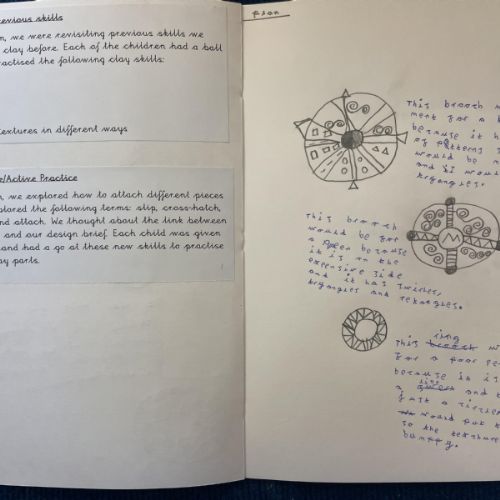 revious skills
n, we were revisiting previous skills we
clay before. Each of the children had a ball
ractised the following clay skills:
textures in different ways
/Active Practice
n, we explored how to attach different pieces
plored the following terms: slip, cross-hatch,
and attach. We thought about the link between
and our design brief. Each child was given
and had a go at these new skills to practise
ay parts.
This broach w
ment for a
because it h
of patterns
would be
and it woul
tryangles.
This broach
would be for
a because
it is on the
expensive side
and it has swirles,
tryangles and retangles.
ring
This broach w
for a poor pe
because it is
a and
just a
would put
so the texture
bumpy.